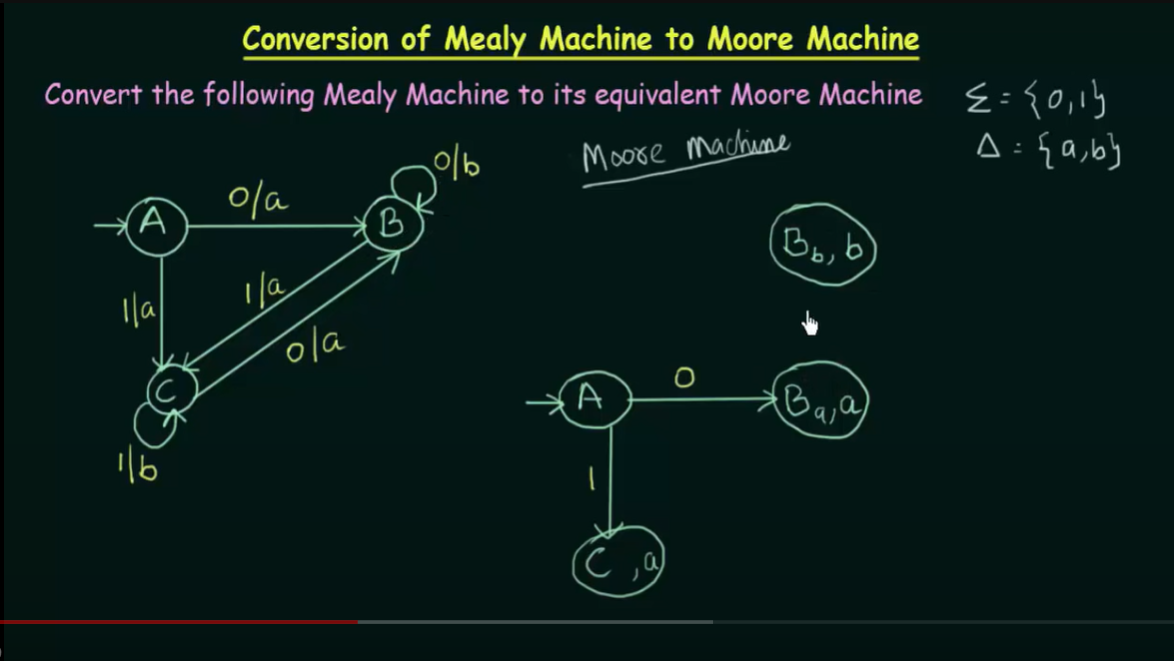 Conversion of Mealy Machine to Moore Machine
Convert the following Mealy Machine to its equivalent Moore Machine
Σ = {0,1}
Δ = {a,b}
Moore Machine
0/b
A
0/a
B
1/a
1/a
0/a
C
1/b
Bb, b
A
0
Ba, a
1
C , a